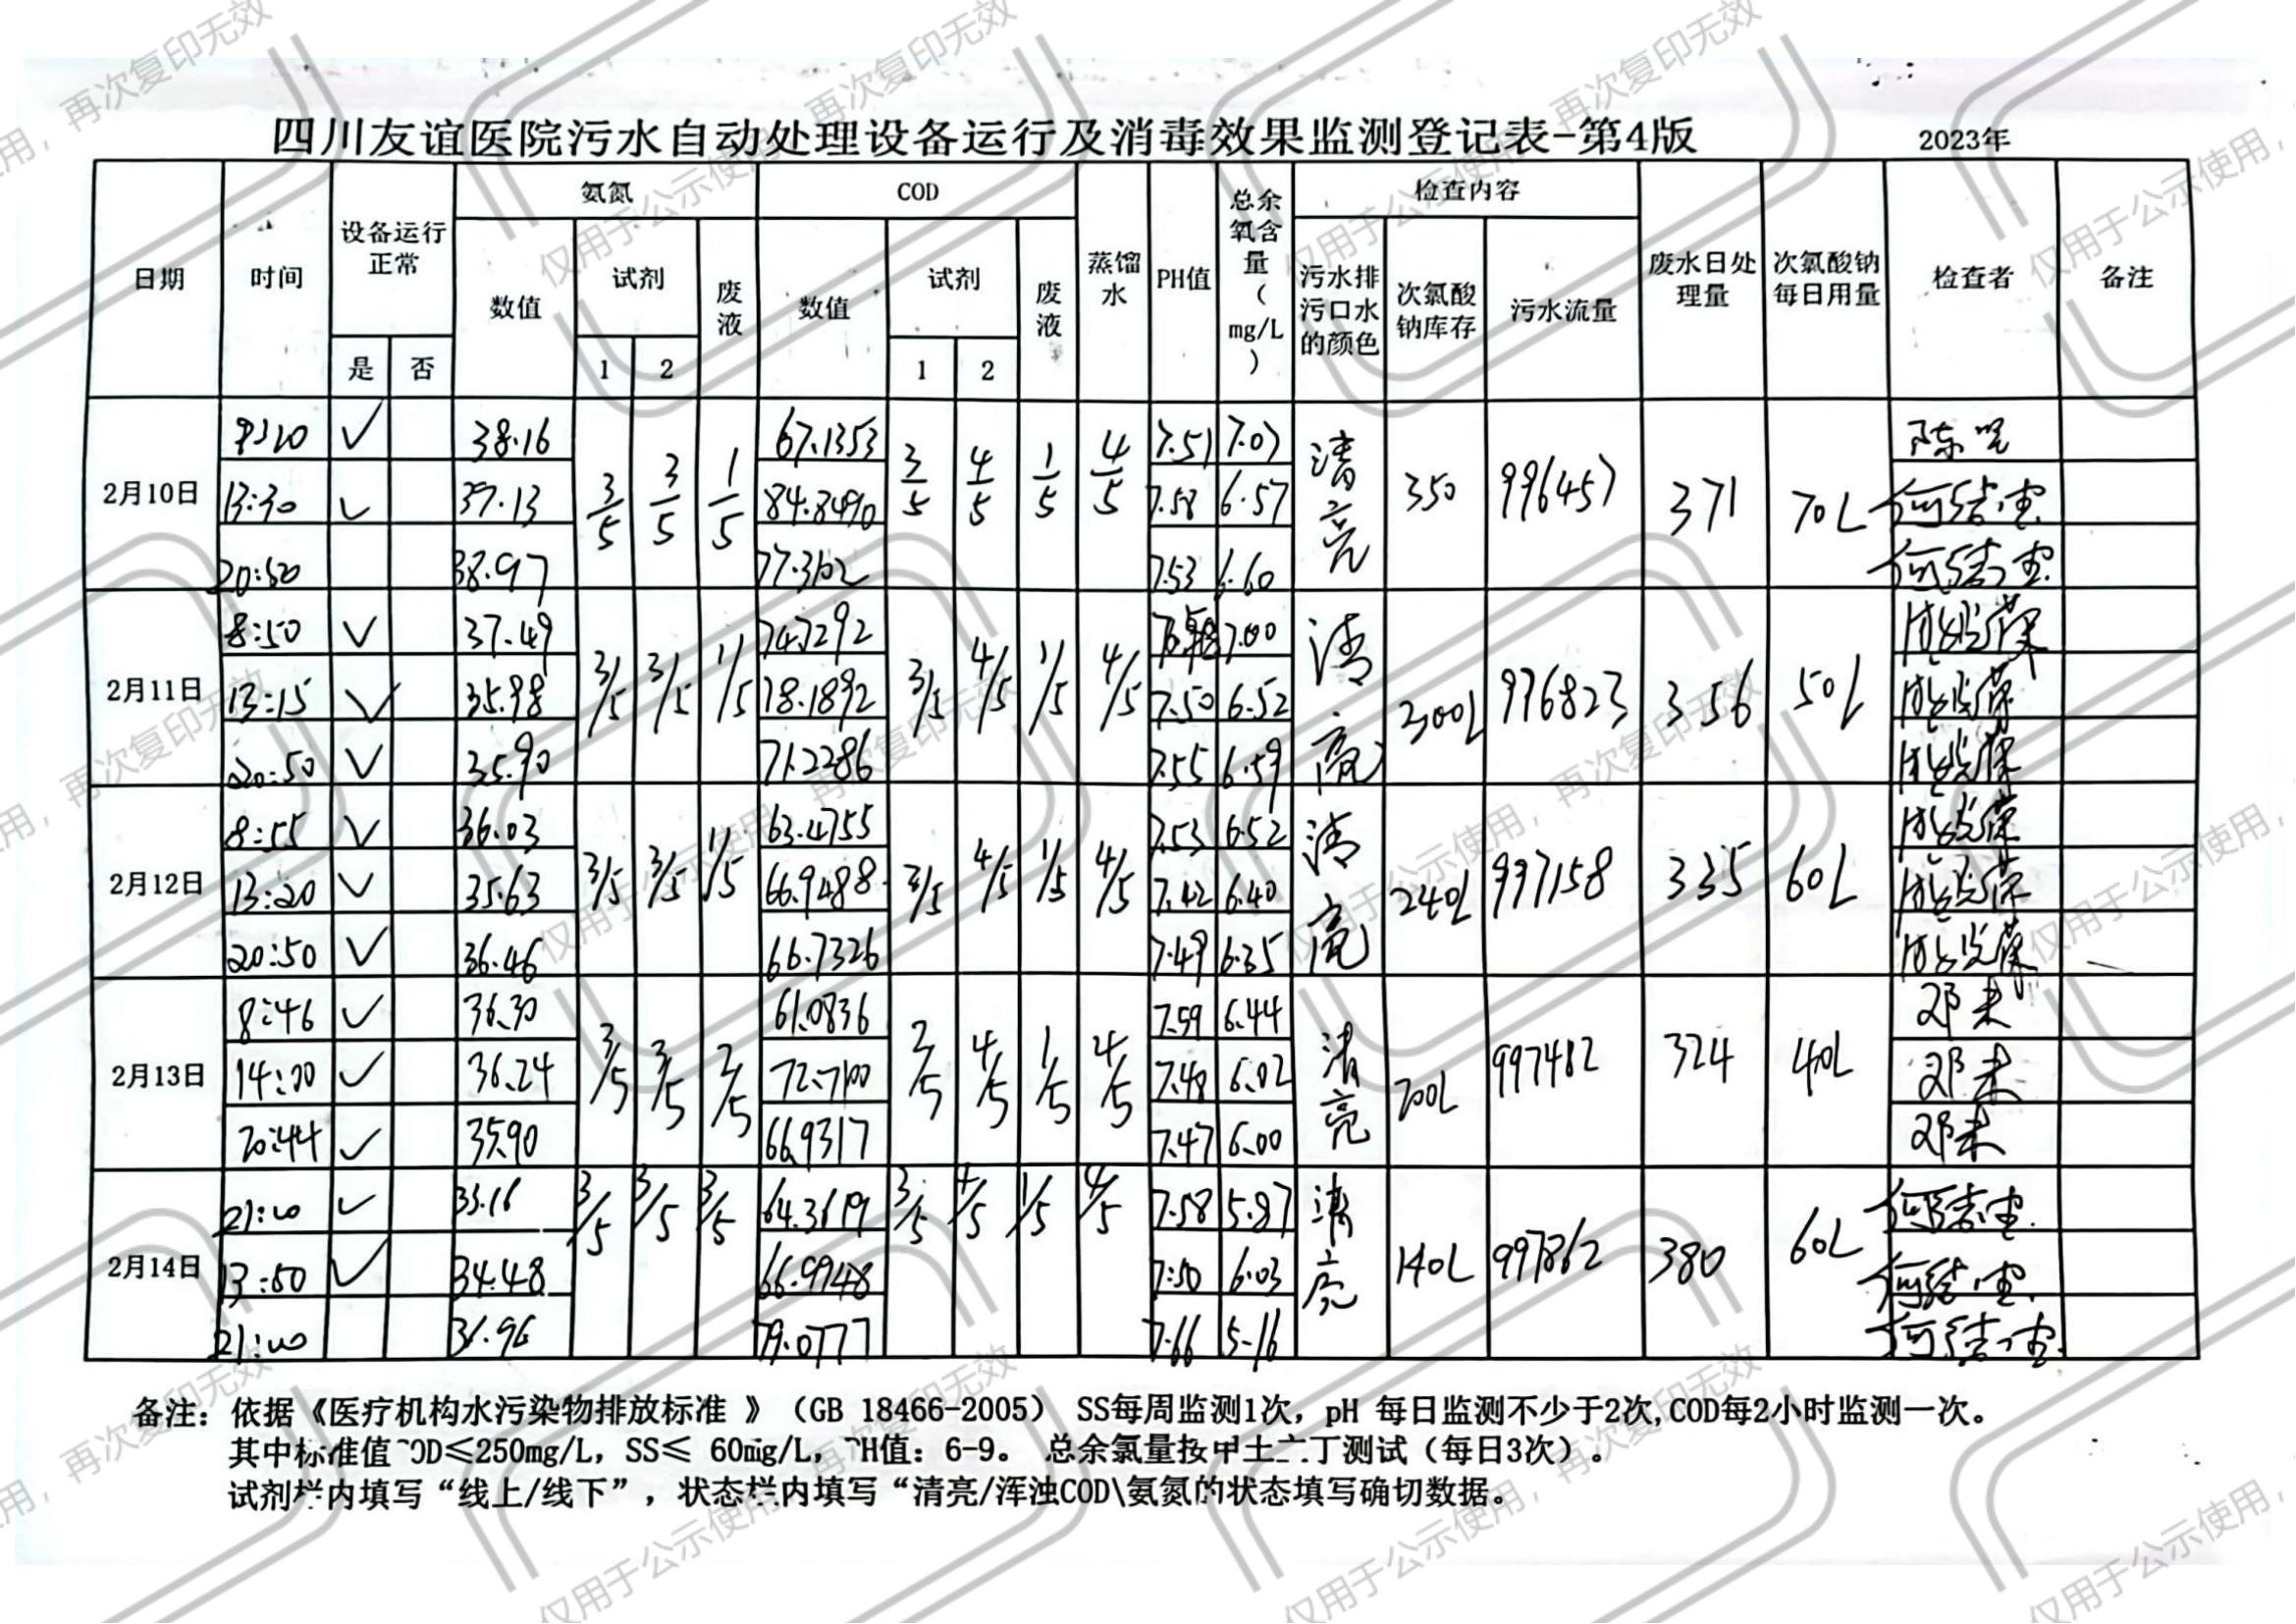 四川友谊医院污水自动处理设备运行及消毒效果监测登记表-第4版 2023年
日期 时间 设备运行正常 氨氮 COD 蒸馏水 PH值 总余氧含量（mg/L） 检查内容 废水日处理量 次氯酸钠每日用量 检查者 备注
是 否 数值 试剂 废液 数值 试剂 废液 污水排污口水的颜色 次氯酸钠库存 污水流量
1 2 1 2
2月10日 ✓ 38.16 3/5 3/5 1/5 67.1353 3/5 4/5 1/5 4/5 7.51 7.07 清亮 350 996457 371 70L
13:30 ✓ 37.13 84.8490 7.58 6.57
20:50 38.97 77.3102 7.53 6.60
2月11日 8:50 ✓ 37.49 3/5 3/5 1/5 74.7292 3/5 4/5 1/5 4/5 7.00 清亮 300L 996823 356 50L
13:15 ✓ 35.98 78.1892 7.50 6.52
20:50 ✓ 35.90 71.2286 7.55 6.59
2月12日 8:55 ✓ 36.03 3/5 3/5 1/5 63.4755 3/5 4/5 1/5 4/5 7.53 6.52 清亮 240L 997158 335 60L
13:20 ✓ 35.63 66.9488 7.42 6.40
20:50 ✓ 36.46 66.7326 7.49 6.35
2月13日 8:46 ✓ 36.30 3/5 3/5 2/5 61.0836 2/5 4/5 1/5 4/5 7.59 6.44 清亮 200L 997482 324 40L 邓未
14:00 ✓ 36.24 72.7100 7.48 6.02 邓未
20:44 ✓ 35.90 66.9317 7.47 6.00 邓未
2月14日 ✓ 33.16 3/5 3/5 3/5 64.3619 3/5 4/5 1/5 4/5 7.58 5.87 清亮 140L 997862 380 60L
13:50 ✓ 34.48 66.9948 7.50 6.03
21:00 79.0777 7.66 5.16
备注：依据《医疗机构水污染物排放标准 》（GB 18466-2005） SS每周监测1次，pH 每日监测不少于2次,COD每2小时监测一次。
其中标准值 OD≤250mg/L，SS≤ 60mg/L， H值：6-9。 总余氯量按 测试（每日3次）。
试剂栏内填写“线上/线下”，状态栏内填写“清亮/浑浊COD\氨氮的状态填写确切数据。
仅用于公示使用，再次复印无效